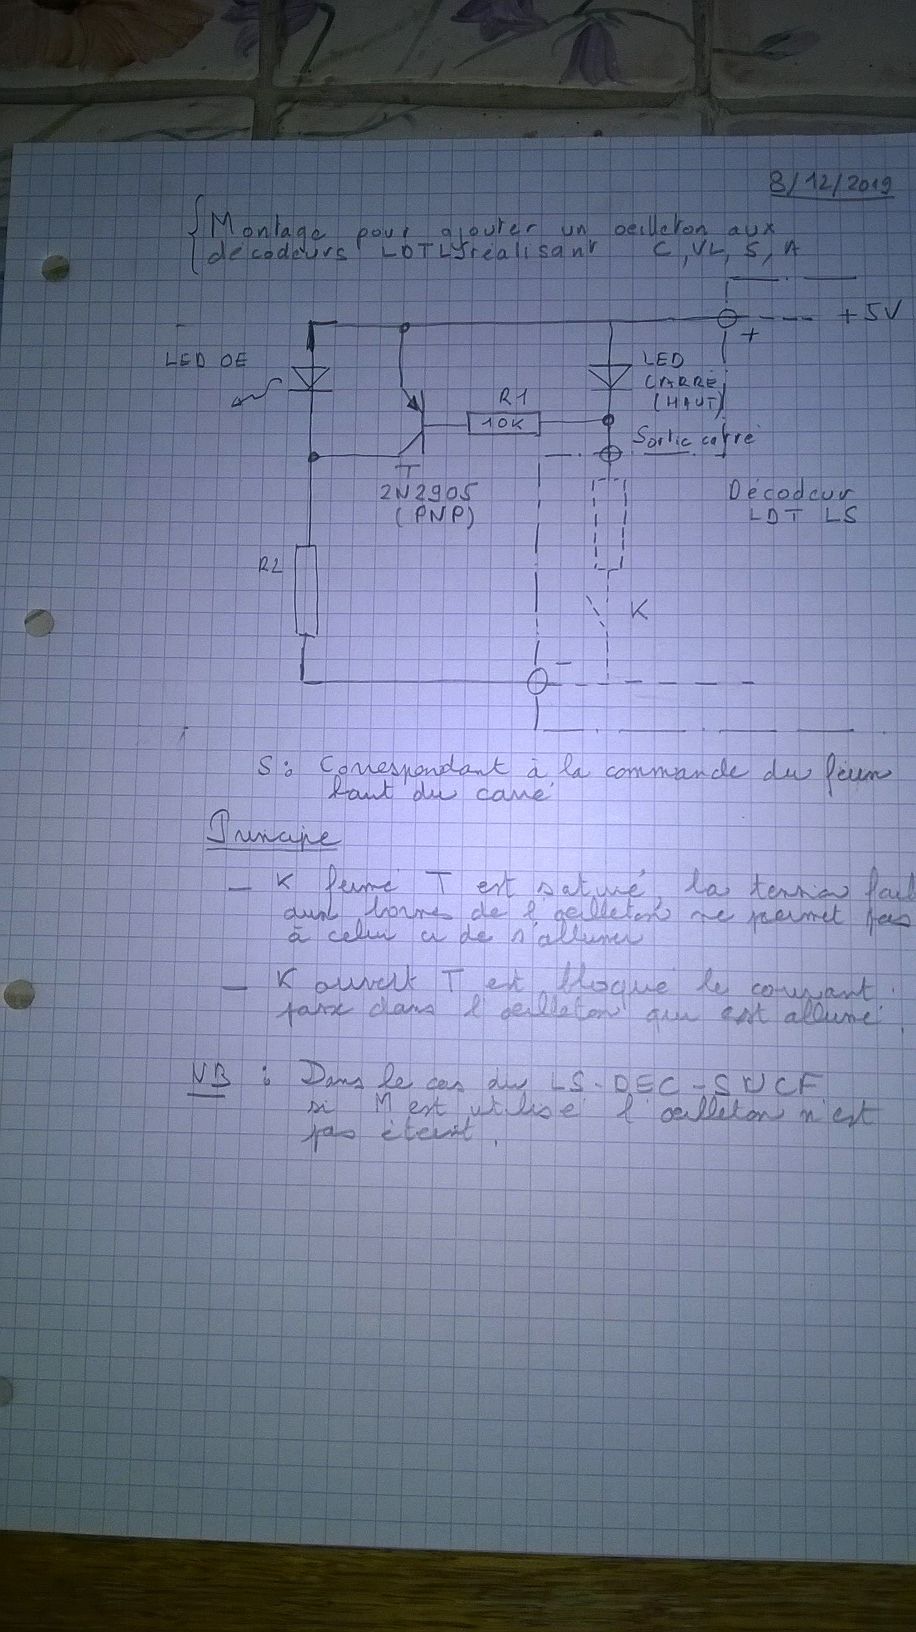 8/12/2019
Montage pour ajouter un oeilleton aux
décodeurs LDT LS réalisant C, VL, S, A
+5V
+
LED OE
LED
CARRE
(HAUT)
R1
10K
Sortie carré
T
2N2905
(PNP)
Décodeur
LDT LS
R2
K
−
S: Correspondant à la commande du feu
haut du carré
Principe
— K fermé T est saturé, la tension
aux bornes de l'oeilleton ne permet pas
à celui ci de s'allumer
— K ouvert T est bloqué le courant
passe dans l'oeilleton qui est allumé.
NB : Dans le cas du LS-DEC-SNCF
si M est utilisé l'oeilleton n'est
pas éteint.